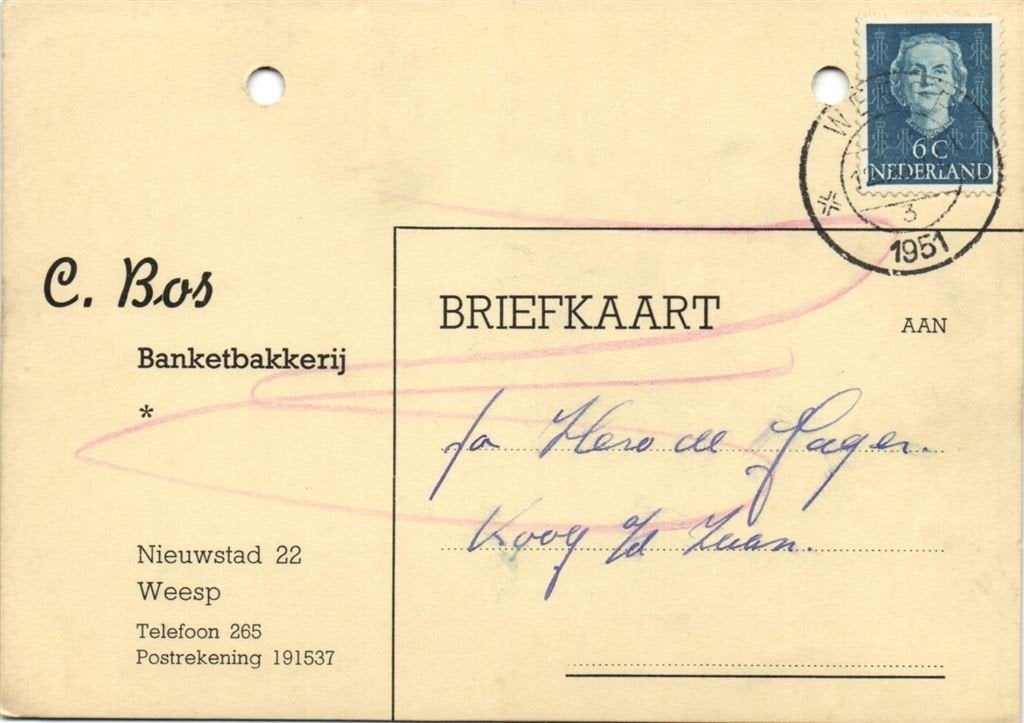 6 C
NEDERLAND
WE
12
3
1951
C. Bos
Banketbakkerij
*
Nieuwstad 22
Weesp
Telefoon 265
Postrekening 191537
BRIEFKAART
AAN
Hero de Jager.
Koog Zaan.